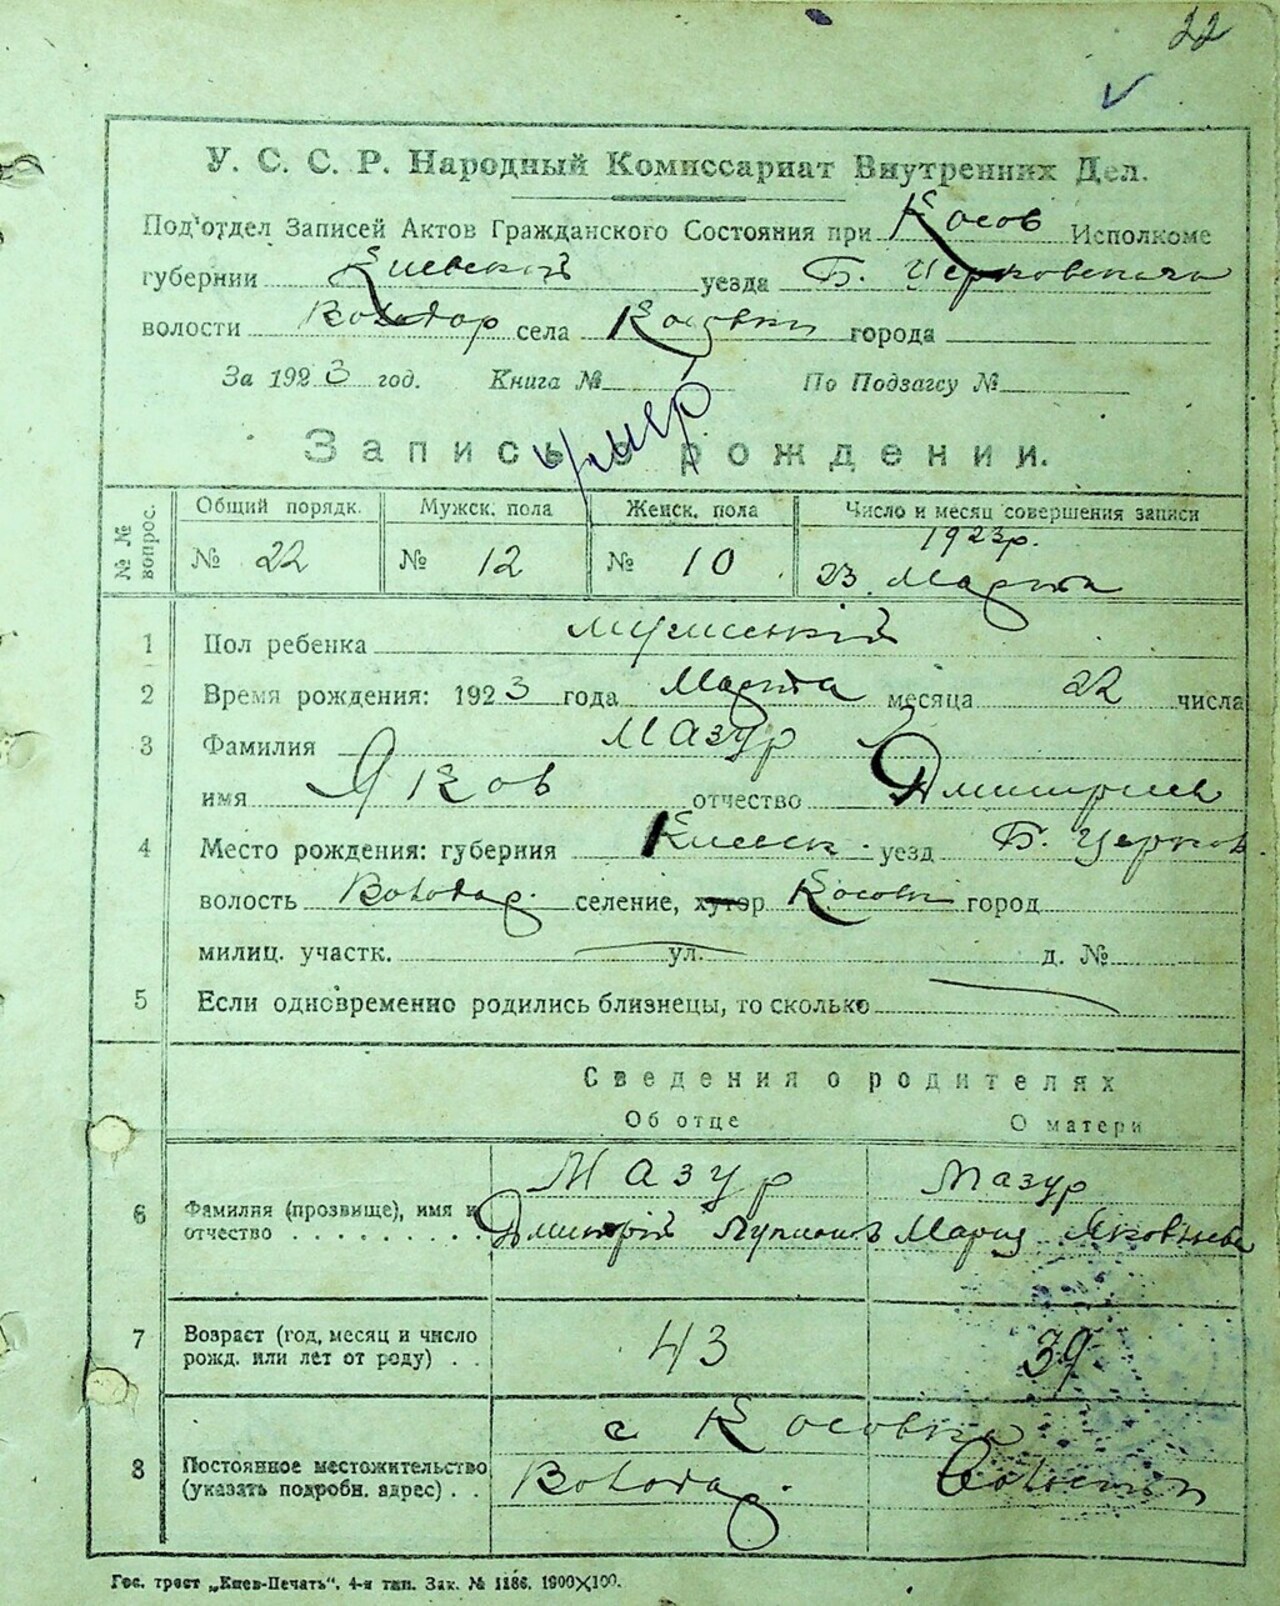 22
У. С. С. Р. Народный Комиссариат Внутренних Дел.
Под'отдел Записей Актов Гражданского Состояния при Косов Исполкоме
губернии Киевской уезда Б. Церковського
волости Володар села Косовки города
За 1923 год. Книга № По Подзагсу №
умер
Запись о рождении.
№ № вопрос. Общий порядк. Мужск. пола Женск. пола Число и месяц совершения записи
1923р.
№ 22 № 12 № 10 23 Марта
1 Пол ребенка мужеский
2 Время рождения: 1923 года Марта месяца 22 числа
3 Фамилия Мазур
имя Яков отчество Дмитриев
4 Место рождения: губерния Киевск. уезд Б. Церков.
волость Володар. селение, хутор Косовки город
милиц. участк. ул. д. №
5 Если одновременно родились близнецы, то сколько
Сведения о родителях
Об отце О матери
Мазур Мазур
6 Фамилия (прозвище), имя и отчество Дмитрій Мария Яковлева
7 Возраст (год, месяц и число рожд. или лет от роду) 43 39
с Косовка
8 Постоянное местожительство (указать подробн. адрес) Володар. волости
Гос. трест „Киев-Печать“. 4-я тип. Зак. № 1186. 1900×100.